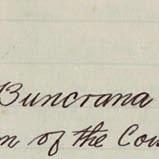 Buncrana
n of the Cou